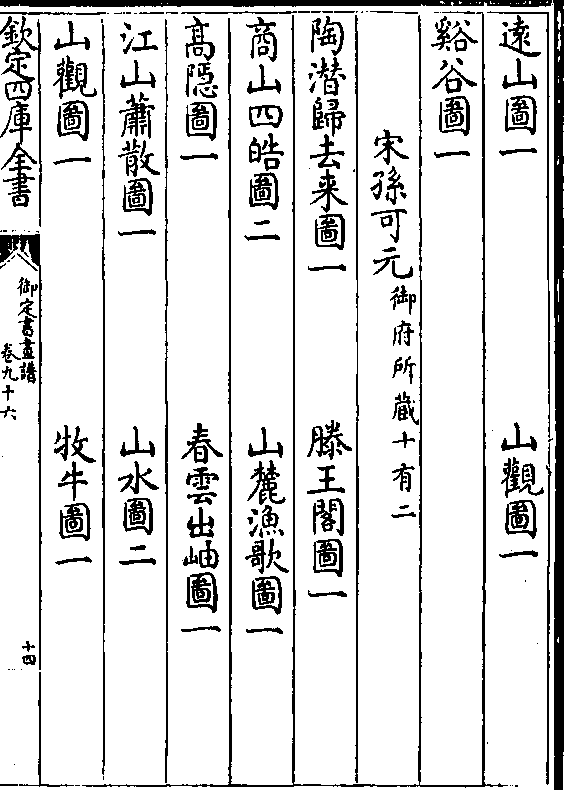 遠山圖一　山觀圖一
谿谷圖一
宋孫可元御府所藏十有二
陶潛歸去来圖一　滕王閣圖一
商山四皓圖二　山麓漁歌圖一
高隱圖一　春雲出岫圖一
江山蕭散圖一　山水圖二
山觀圖一　牧牛圖一
欽定四庫全書
御定書畫譜
卷九十六
十四